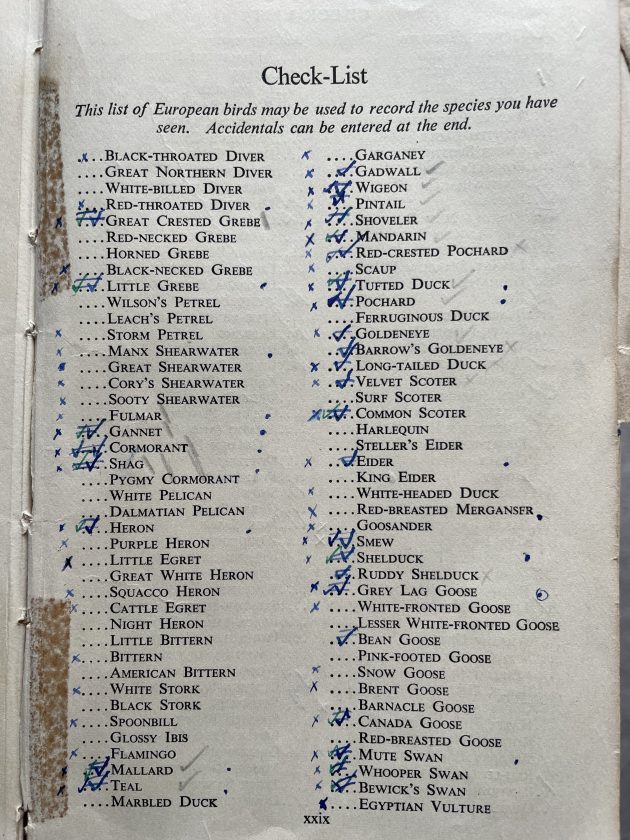 Check-List
This list of European birds may be used to record the species you have
seen. Accidentals can be entered at the end.
....Black-throated Diver
....Great Northern Diver
....White-billed Diver
....Red-throated Diver
....Great Crested Grebe
....Red-necked Grebe
....Horned Grebe
....Black-necked Grebe
....Little Grebe
....Wilson's Petrel
....Leach's Petrel
....Storm Petrel
....Manx Shearwater
....Great Shearwater
....Cory's Shearwater
....Sooty Shearwater
....Fulmar
....Gannet
....Cormorant
....Shag
....Pygmy Cormorant
....White Pelican
....Dalmatian Pelican
....Heron
....Purple Heron
....Little Egret
....Great White Heron
....Squacco Heron
....Cattle Egret
....Night Heron
....Little Bittern
....Bittern
....American Bittern
....White Stork
....Black Stork
....Spoonbill
....Glossy Ibis
....Flamingo
....Mallard
....Teal
....Marbled Duck
....Garganey
....Gadwall
....Wigeon
....Pintail
....Shoveler
....Mandarin
....Red-crested Pochard
....Scaup
....Tufted Duck
....Pochard
....Ferruginous Duck
....Goldeneye
....Barrow's Goldeneye
....Long-tailed Duck
....Velvet Scoter
....Surf Scoter
....Common Scoter
....Harlequin
....Steller's Eider
....Eider
....King Eider
....White-headed Duck
....Red-breasted Merganser
....Goosander
....Smew
....Shelduck
....Ruddy Shelduck
....Grey Lag Goose
....White-fronted Goose
....Lesser White-fronted Goose
....Bean Goose
....Pink-footed Goose
....Snow Goose
....Brent Goose
....Barnacle Goose
....Canada Goose
....Red-breasted Goose
....Mute Swan
....Whooper Swan
....Bewick's Swan
....Egyptian Vulture
xxix